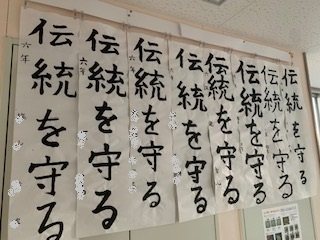 伝統を守る
六年
伝統を守る
六年
伝統を守る
六年
伝統を守る
伝統を守る
伝統を守る
伝統を守る
伝統を守る